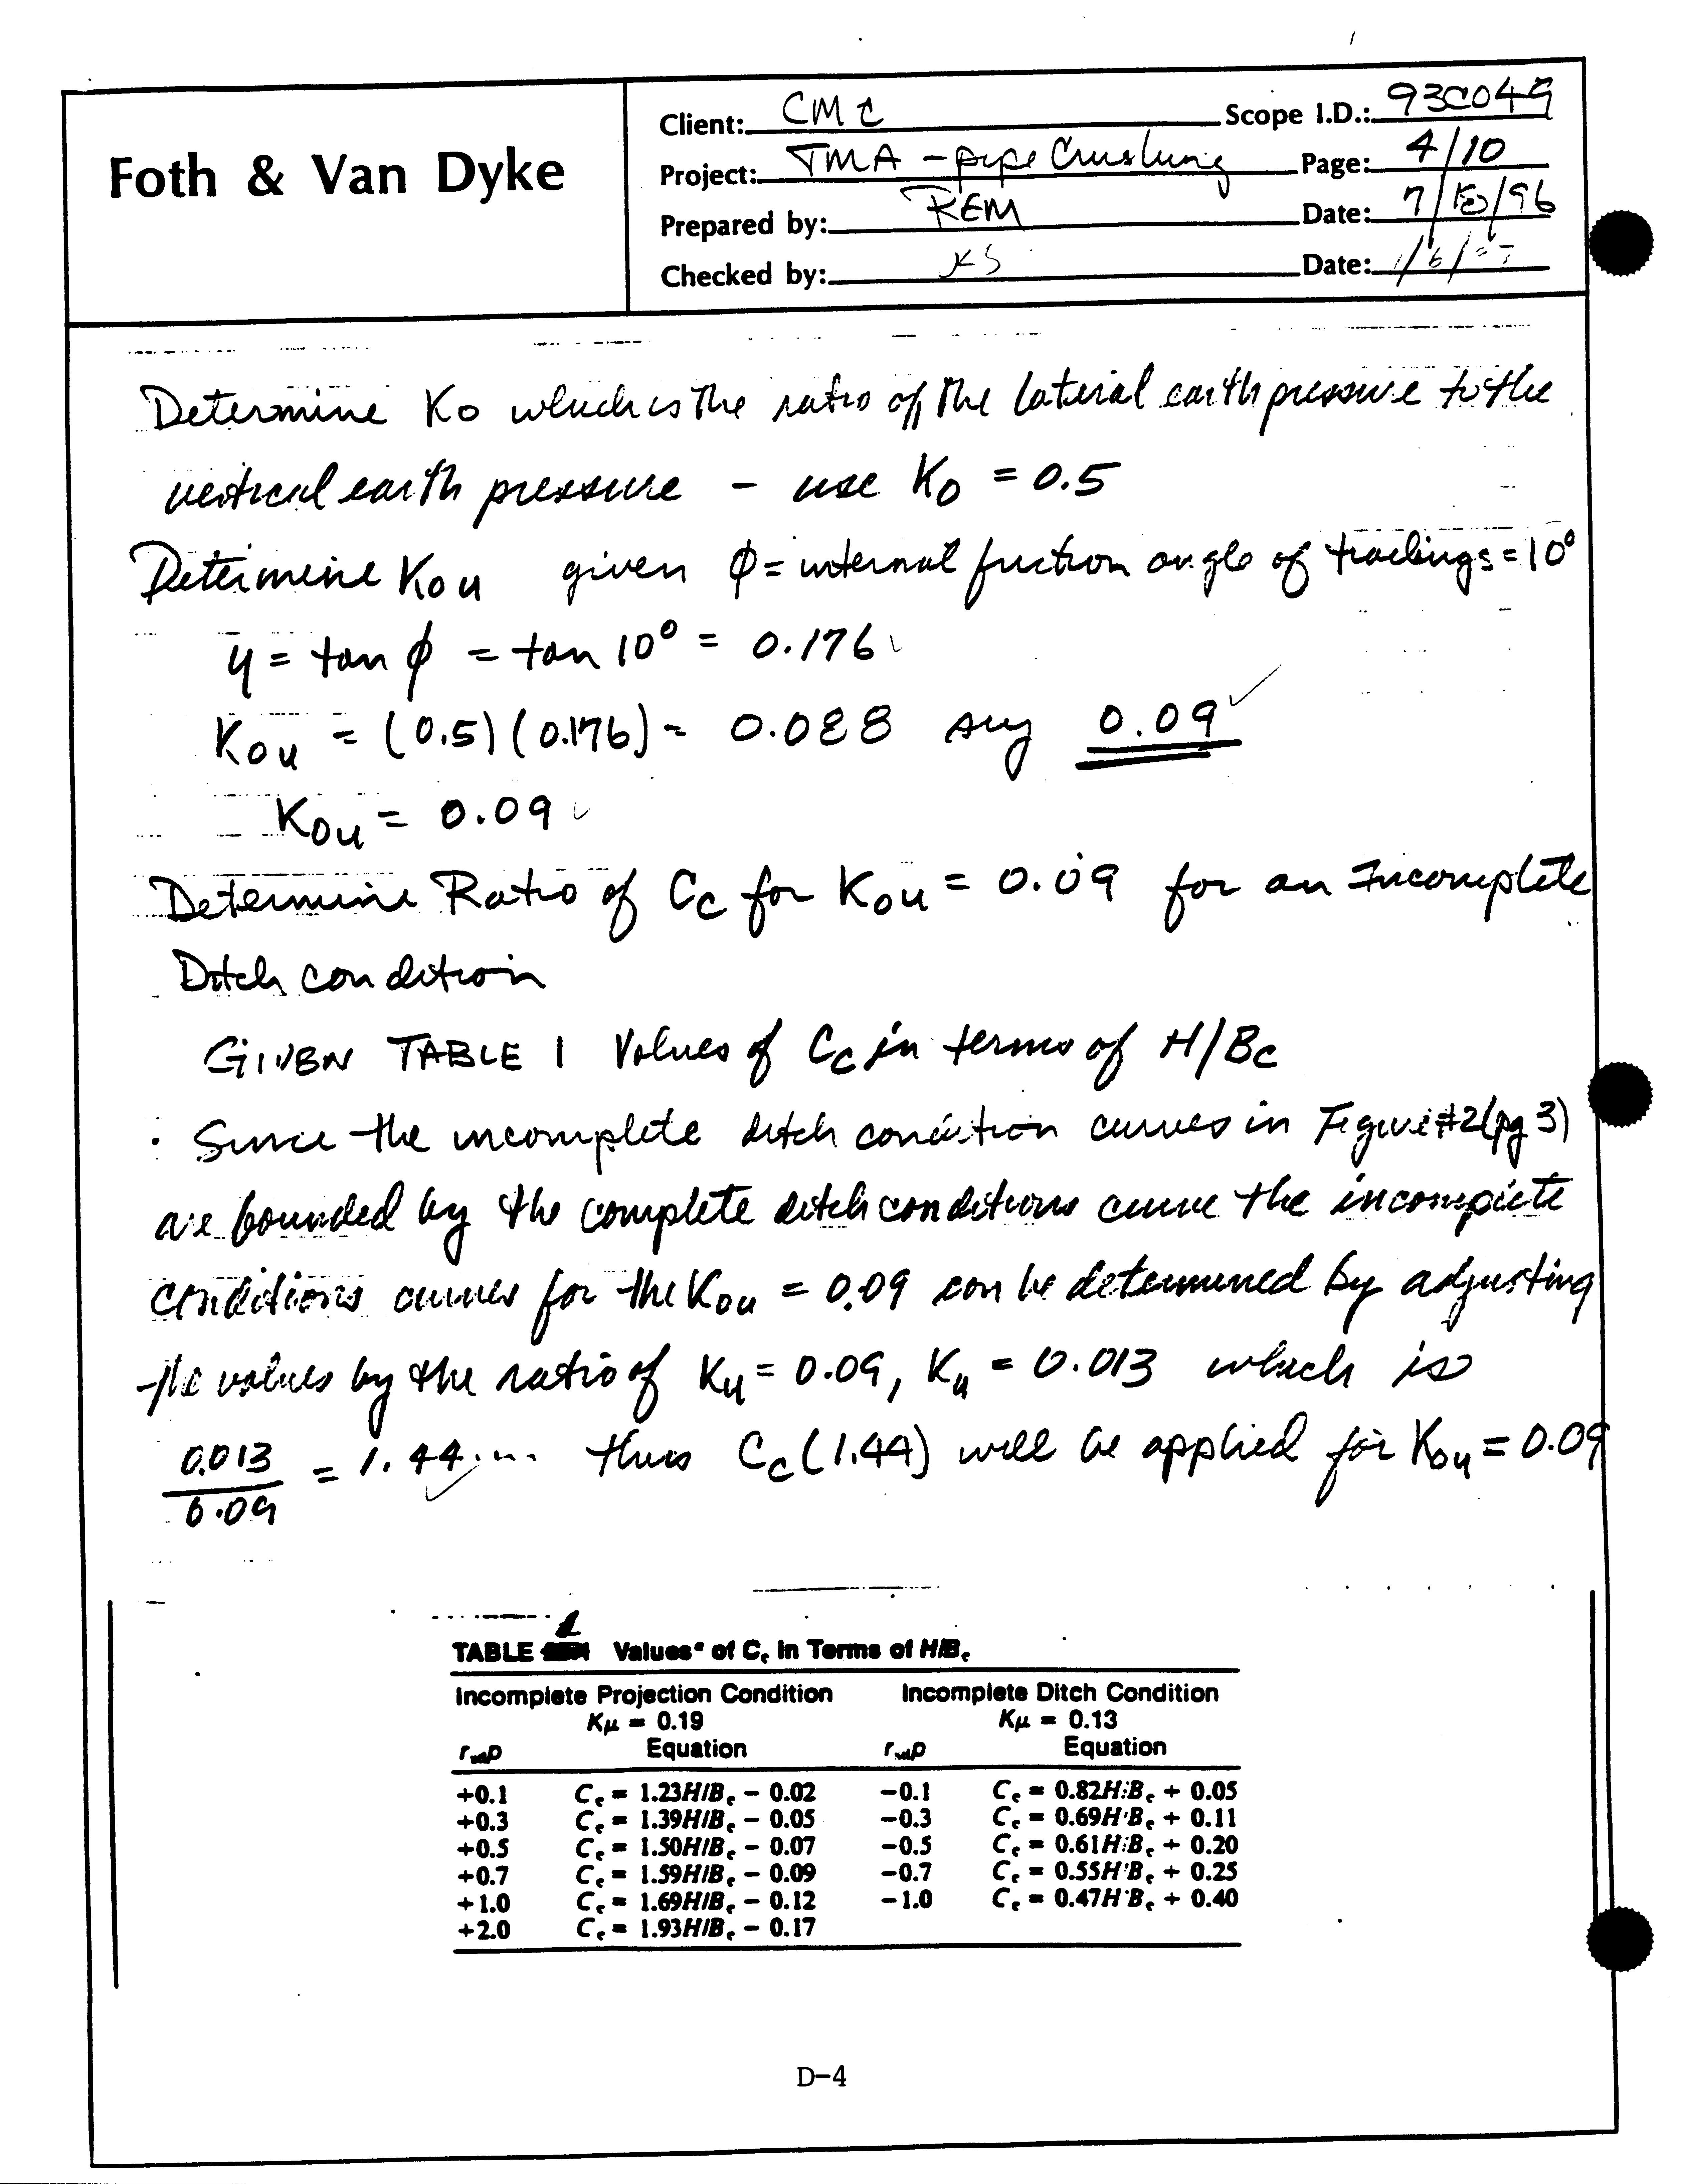 Foth & Van Dyke
Client: CMC Scope I.D.: 93C049
Project: TMA - pipe Crushing Page: 4/10
Prepared by: REM Date: 7/ /96
Checked by: KS Date: 1/6/
Determine Ko which is the ratio of the lateral earth pressure to the
vertical earth pressure - use Ko = 0.5
Determine Kou given φ = internal friction angle of tailings = 10°
u = tan φ = tan 10° = 0.176 ✓
Kou = (0.5)(0.176) = 0.088 say 0.09 ✓
Kou = 0.09 ✓
Determine Ratio of Cc for Kou = 0.09 for an Incomplete
Ditch condition
GIVEN TABLE 1 Values of Cc in terms of H/Bc
· Since the incomplete ditch condition curves in Figure #2 (pg 3)
are bounded by the complete ditch conditions curve the incomplete
conditions curves for the Kou = 0.09 can be determined by adjusting
the values by the ratio of Ku = 0.09, Ku = 0.013 which is
0.013
0.09
= 1.44 ✓ thus Cc (1.44) will be applied for Kou = 0.09
TABLE 1 Valuesᵃ of Cc in Terms of H/Bc
Incomplete Projection Condition Incomplete Ditch Condition
Kμ = 0.19 Kμ = 0.13
rsdp Equation rsdp Equation
+0.1 Cc = 1.23H/Bc − 0.02 −0.1 Cc = 0.82H/Bc + 0.05
+0.3 Cc = 1.39H/Bc − 0.05 −0.3 Cc = 0.69H/Bc + 0.11
+0.5 Cc = 1.50H/Bc − 0.07 −0.5 Cc = 0.61H/Bc + 0.20
+0.7 Cc = 1.59H/Bc − 0.09 −0.7 Cc = 0.55H/Bc + 0.25
+1.0 Cc = 1.69H/Bc − 0.12 −1.0 Cc = 0.47H/Bc + 0.40
+2.0 Cc = 1.93H/Bc − 0.17
D-4